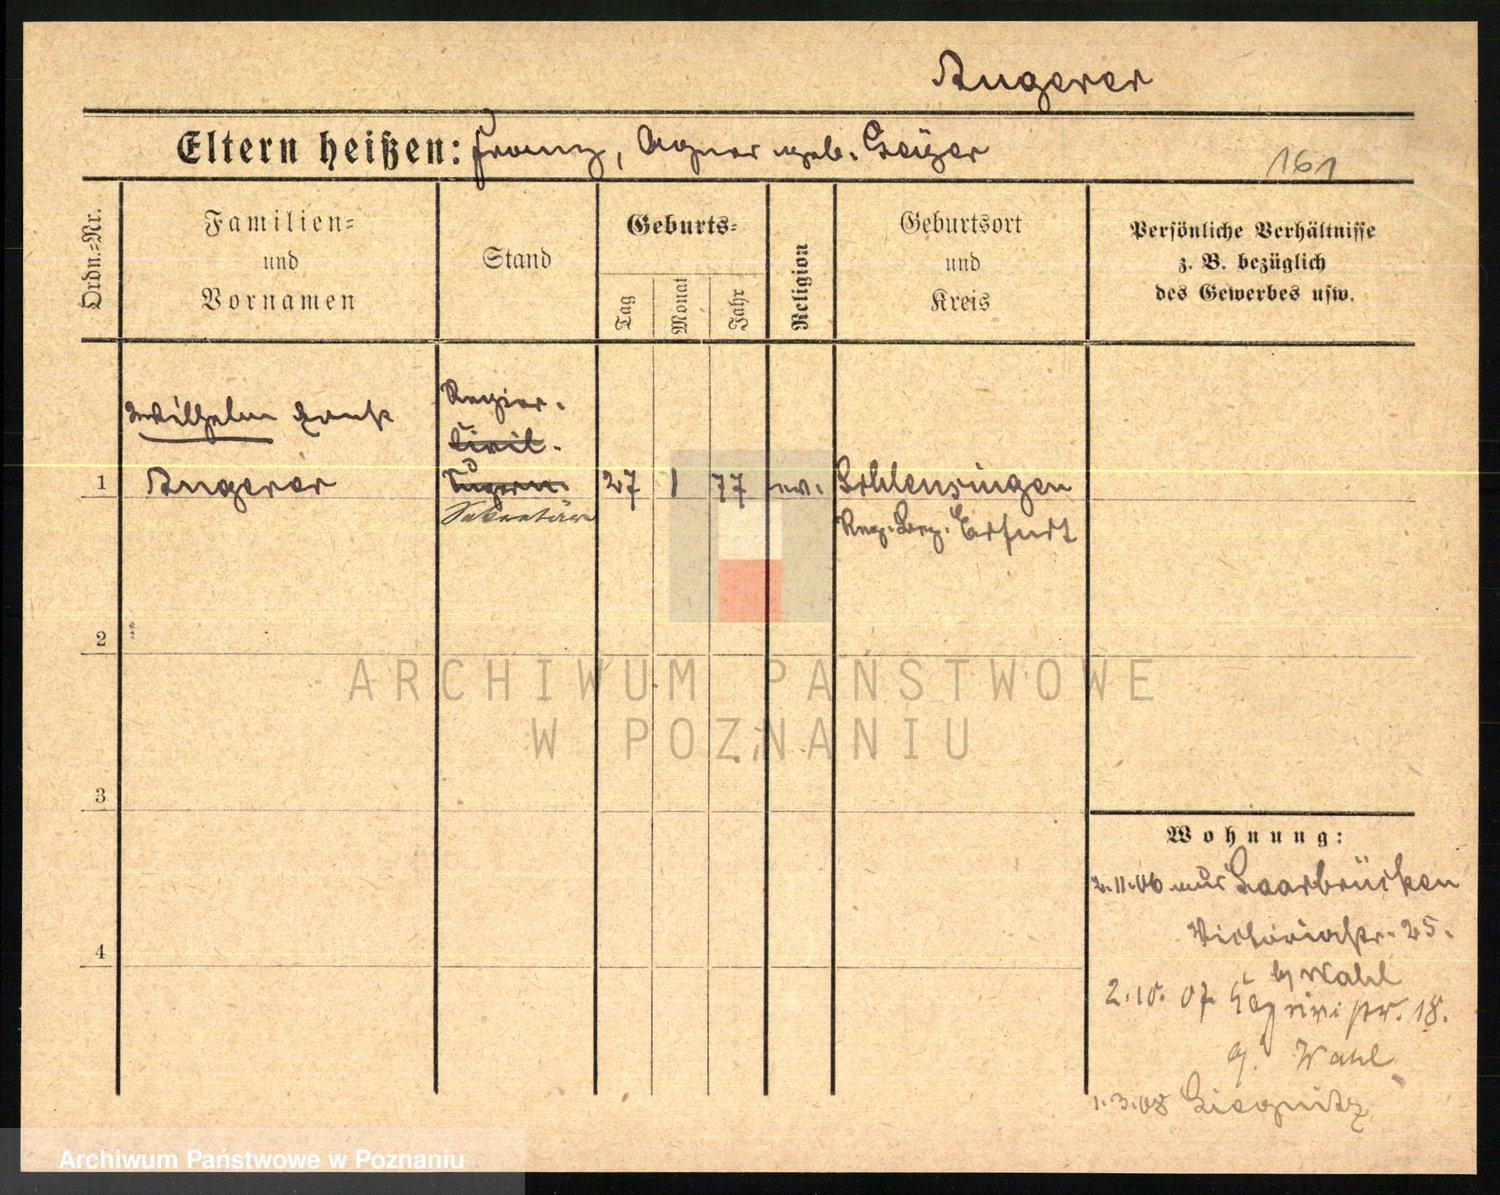 Angerer
Eltern heißen: Franz, Agnes geb. Geiger
161
Ordn.-Nr.
Familien-
und
Vornamen
Stand
Geburts-
Tag
Monat
Jahr
Religion
Geburtsort
und
Kreis
Persönliche Verhältnisse
z. B. bezüglich
des Gewerbes usw.
Wilhelm Ernst
Angerer
Regier.
Civil.
Supern.
Sekretär
1
27
1
77
ev.
Schleusingen
Reg. Bez. Erfurt
2
3
4
Wohnung:
2.11.06 aus Saarbrücken
Victoriastr. 25.
b/ Wahl
2.10.07 Caprivistr. 18.
Wahl
1.3.08 Liegnitz
ARCHIWUM PAŃSTWOWE
W POZNANIU
Archiwum Państwowe w Poznaniu